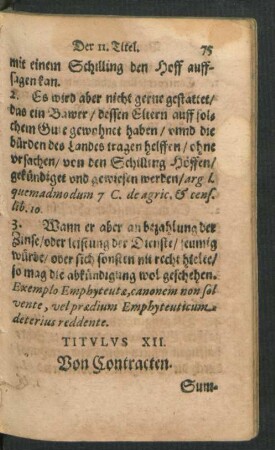 Der 11. Titel. 75
mit einem Schilling den Hoff auff-
sagen kan.
2. Es wird aber nicht gerne gestattet/
das ein Bawer/ dessen Eltern auff sol-
chem Gute gewohnet haben/ vnnd die
bürden des Landes tragen helffen/ ohne
vrsachen/ von den Schilling Höffen/
gekündiget vnd gewiesen werden/ arg. l.
quemadmodum 7 C. de agric. & cens.
lib. 10.
3. Wann er aber an bezahlung der
Zinse/ oder leistung der Dienste/ seumig
würde/ oder sich sonsten nit recht hielte/
so mag die abkündigung wol geschehen.
Exemplo Emphyteutæ, canonem non sol
vente, vel prædium Emphyteuticum
deterius reddente.
TITVLVS XII.
Von Contracten.
Sum-